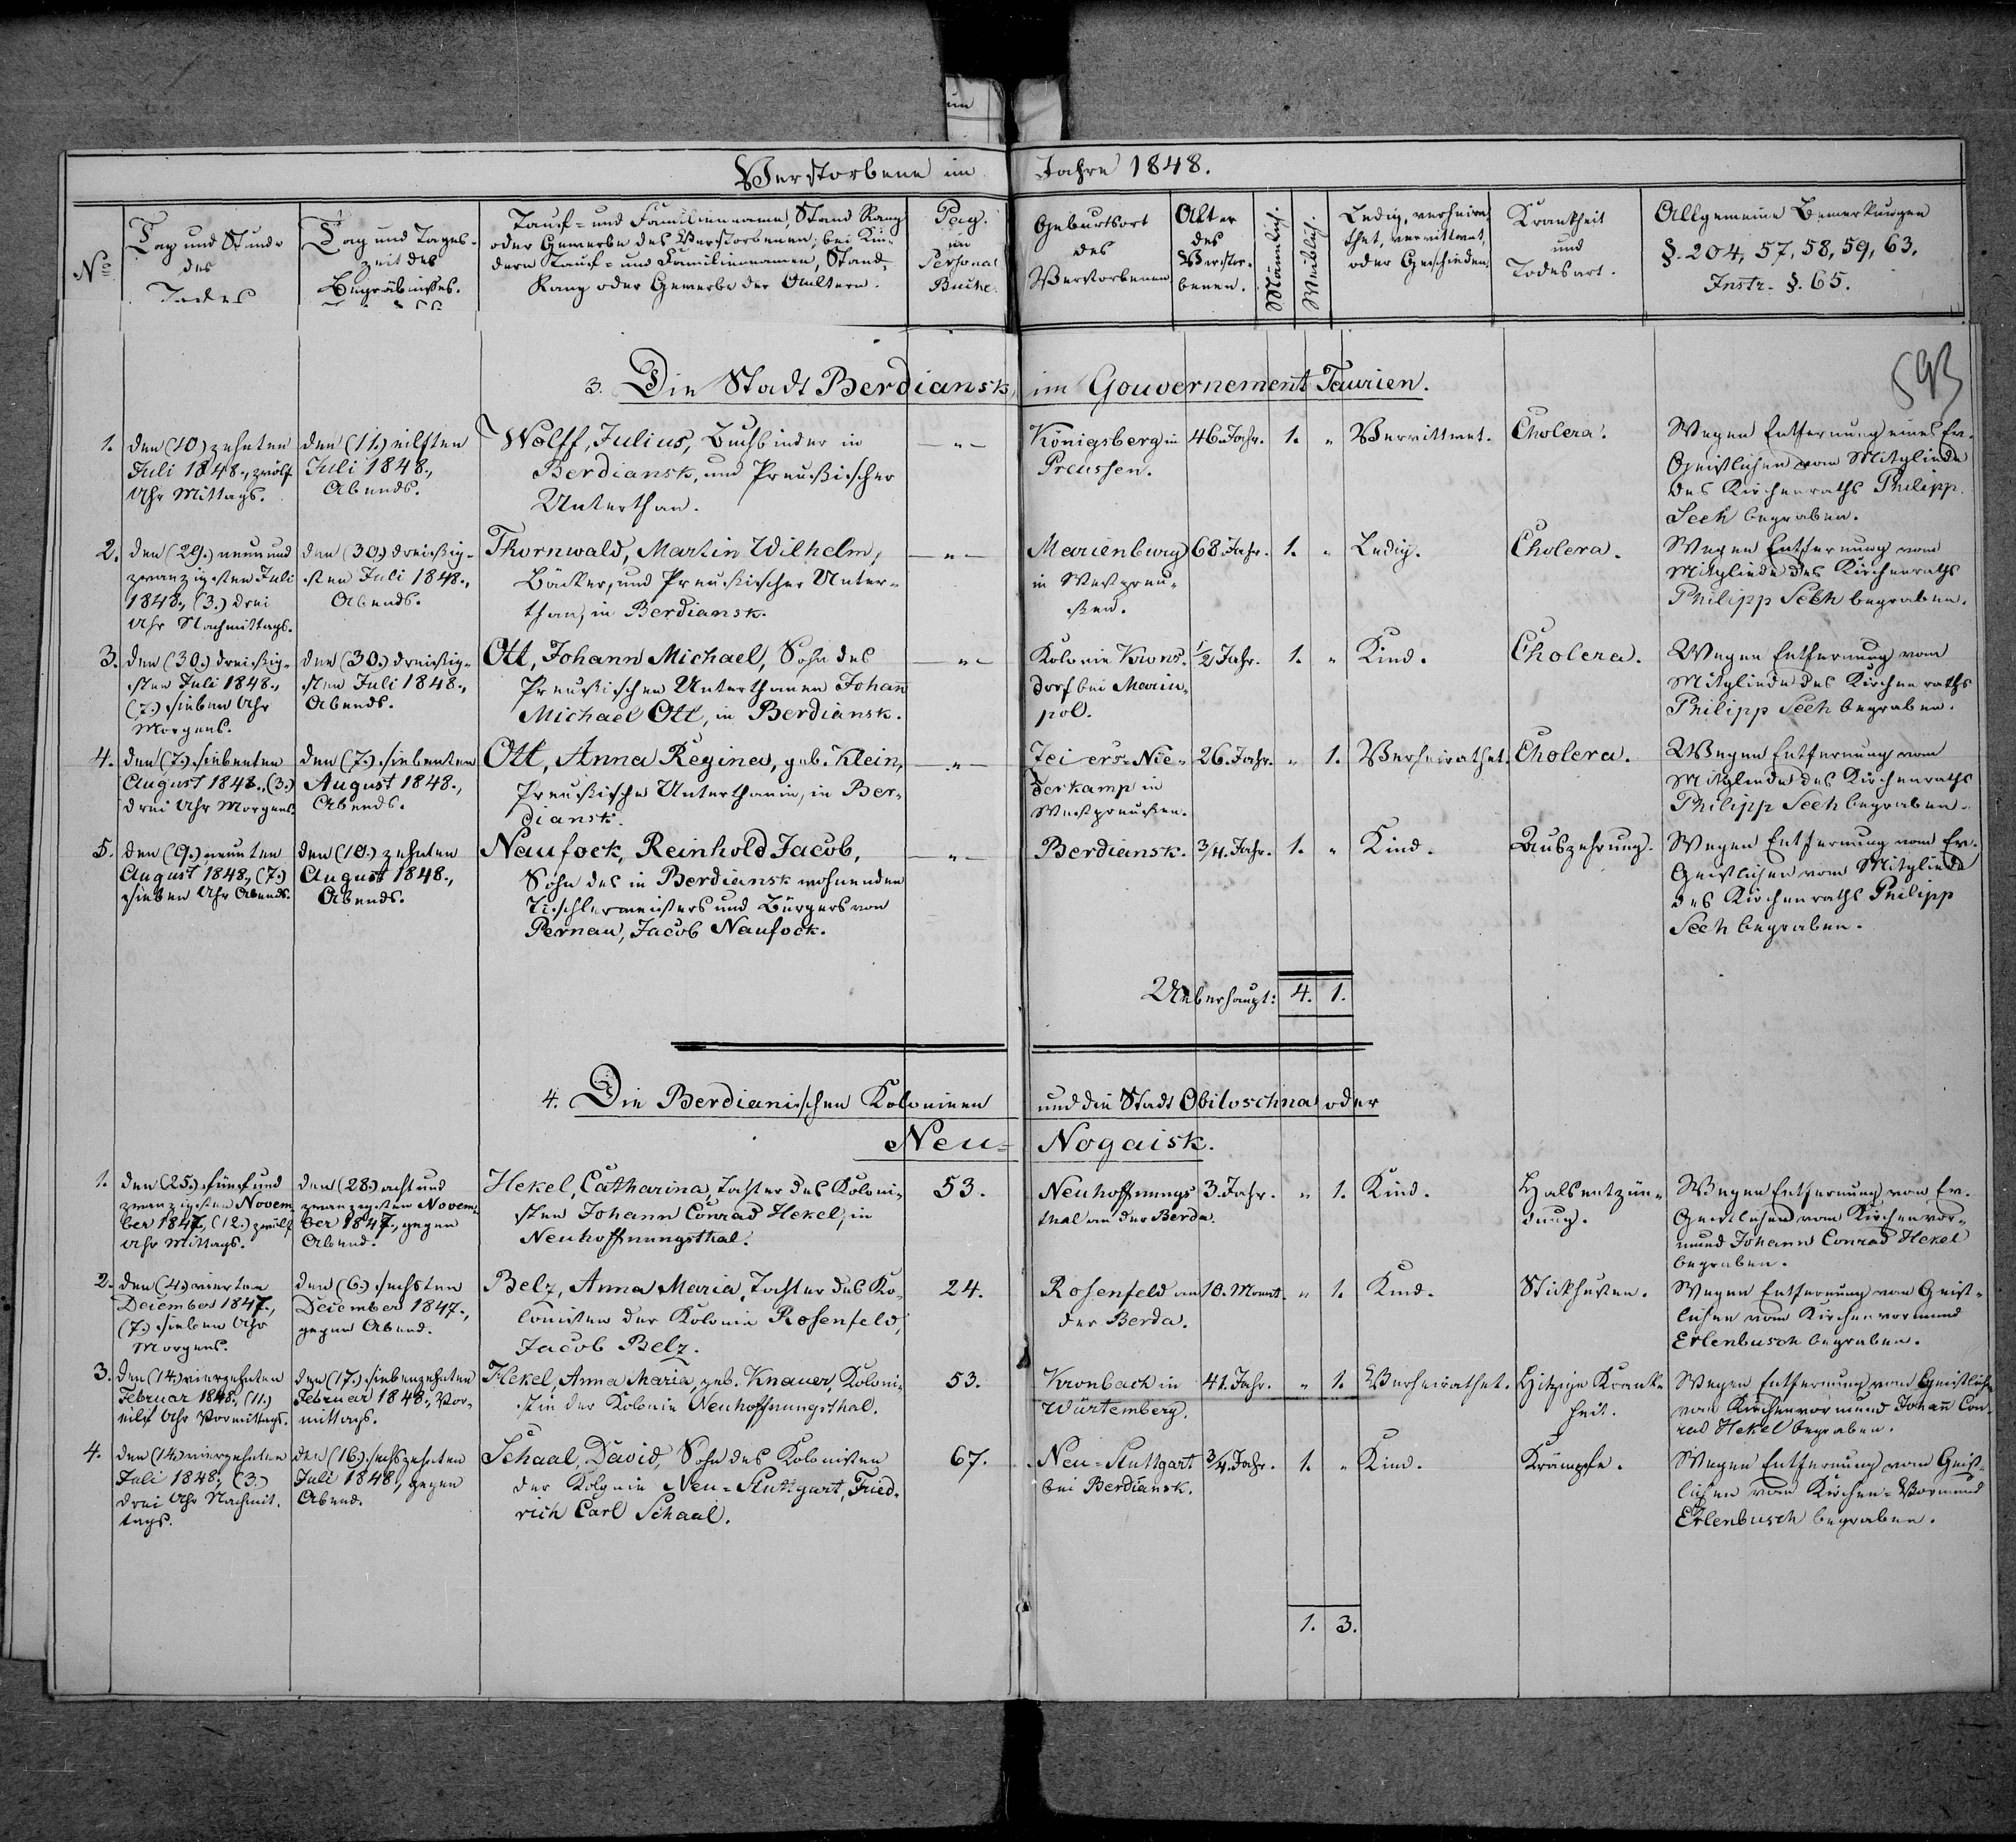 Verstorbene im Jahre 1848.
No
Tag und Stunde
des
Todes
Tag und Tages-
zeit des
Begräbnisses.
Tauf- und Familienname, Stand Rang
oder Gewerbe des Verstorbenen; bei Kin-
dern Tauf- und Familiennamen, Stand,
Rang oder Gewerbe der Aeltern.
Pag.
im
Personal
Buche.
Geburtsort
des
Verstorbenen
Alter
des
Verstor-
benen.
Männlich.
Weiblich.
Ledig, verheira-
thet, verwittwet,
oder Geschieden.
Krankheit
und
Todesart.
Allgemeine Bemerkungen
§. 204, 57, 58, 59, 63,
Instr. §. 65.
593
3. Die Stadt Berdiansk, im Gouvernement Taurien.
1.
den (10) zehnten
Juli 1848., zwölf
Uhr Mittags.
den (11.) eilften
Juli 1848.,
Abends.
Wolff, Julius, Buchbinder in
Berdiansk, und Preußischer
Unterthan.
— " —
Königsberg in
Preussen.
46. Jahr.
1.
"
Verwittwet.
Cholera.
Wegen Entfernung eines Ev.
Geistlichen vom Mitgliede
des Kirchenraths Philipp
Seeh begraben.
2.
den (29.) neun und
zwanzigsten Juli
1848., (3.) drei
Uhr Nachmittags.
den (30.) dreißig-
sten Juli 1848.,
Abends.
Thornwald, Martin Wilhelm,
Bäcker, und Preußischer Unter-
than, in Berdiansk.
— " —
Marienburg
in Westpreu-
ßen.
68. Jahr.
1.
"
Ledig.
Cholera.
Wegen Entfernung vom
Mitgliede des Kirchenraths
Philipp Seeh begraben.
3.
den (30.) dreißig-
sten Juli 1848.,
(7.) sieben Uhr
Morgens.
den (30.) dreißig-
sten Juli 1848.,
Abends.
Ott, Johann Michael, Sohn des
Preußischen Unterthanen Johan̄
Michael Ott, in Berdiansk.
— " —
Kolonie Krons-
dorf bei Mariu-
pol.
1/2 Jahr.
1.
"
Kind.
Cholera.
Wegen Entfernung vom
Mitgliede des Kirchenraths
Philipp Seeh begraben.
4.
den (7.) siebenten
August 1848., (3.)
drei Uhr Morgens.
den (7.) siebenten
August 1848.,
Abends.
Ott, Anna Regina, geb. Klein,
Preußische Unterthanin, in Ber-
diansk.
— " —
Zeiers-Nie-
derkamp in
Westpreußen.
26. Jahr.
"
1.
Verheirathet.
Cholera.
Wegen Entfernung vom
Mitgliede des Kirchenraths
Philipp Seeh begraben.
5.
den (9.) neunten
August 1848., (7.)
sieben Uhr Abends.
den (10.) zehnten
August 1848.,
Abends.
Naufock, Reinhold Jacob,
Sohn des in Berdiansk wohnenden
Tischlermeisters und Bürgers von
Pernau, Jacob Naufock.
— " —
Berdiansk.
3/4. Jahr.
1.
"
Kind.
Auszehrung.
Wegen Entfernung vom Ev.
Geistlichen vom Mitgliede
des Kirchenraths Philipp
Seeh begraben.
Ueberhaupt: 4. 1.
4. Die Berdianischen Kolonieen und die Stadt Obitoschna oder
Neu- Nogaisk.
1.
den (25.) fünf und
zwanzigsten Novem
ber 1847., (12.) zwölf
Uhr Mittags.
den (28.) acht und
zwanzigsten Novem-
ber 1847., gegen
Abend.
Hekel, Catharina, Tochter des Koloni-
sten Johann Conrad Hekel, in
Neuhoffnungsthal.
53.
Neuhoffnungs
thal an der Berda.
3. Jahr.
"
1.
Kind.
Halsentzün-
dung.
Wegen Entfernung vom Ev.
Geistlichen vom Kirchenvor-
mund Johann Conrad Hekel
begraben.
2.
den (4.) vierten
December 1847.,
(7.) sieben Uhr
Morgens.
den (6.) sechsten
December 1847.,
gegen Abend.
Belz, Anna Maria, Tochter des Ko-
lonisten der Kolonie Rosenfeld,
Jacob Belz.
24.
Rosenfeld an
der Berda.
10. Monat.
"
1.
Kind.
Stickhusten.
Wegen Entfernung vom Geist-
lichen vom Kirchenvormund
Erlenbusch begraben.
3.
den (14.) vierzehnten
Februar 1848., (11.)
eilf Uhr Vormittags.
den (17.) siebenzehnten
Februar 1848., Vor-
mittags.
Hekel, Anna Maria, geb. Knauer, Koloni-
stin der Kolonie Neuhoffnungsthal.
53.
Kronbach in
Würtemberg.
41. Jahr.
"
1.
Verheirathet.
Hitzige Krank-
heit.
Wegen Entfernung vom Geistlichen
vom Kirchenvormund Johan̄ Con-
rad Hekel begraben.
4.
den (14.) vierzehnten
Juli 1848., (3.)
drei Uhr Nachmit-
tags.
den (16.) sechszehnten
Juli 1848., gegen
Abend.
Schaal, David, Sohn des Kolonisten
der Kolonie Neu-Stuttgart, Fried-
rich Carl Schaal.
67.
Neu-Stuttgart
bei Berdiansk.
3/4. Jahr.
1.
"
Kind.
Krämpfe.
Wegen Entfernung vom Geist-
lichen vom Kirchen-Vormund
Erlenbusch begraben.
1. 3.